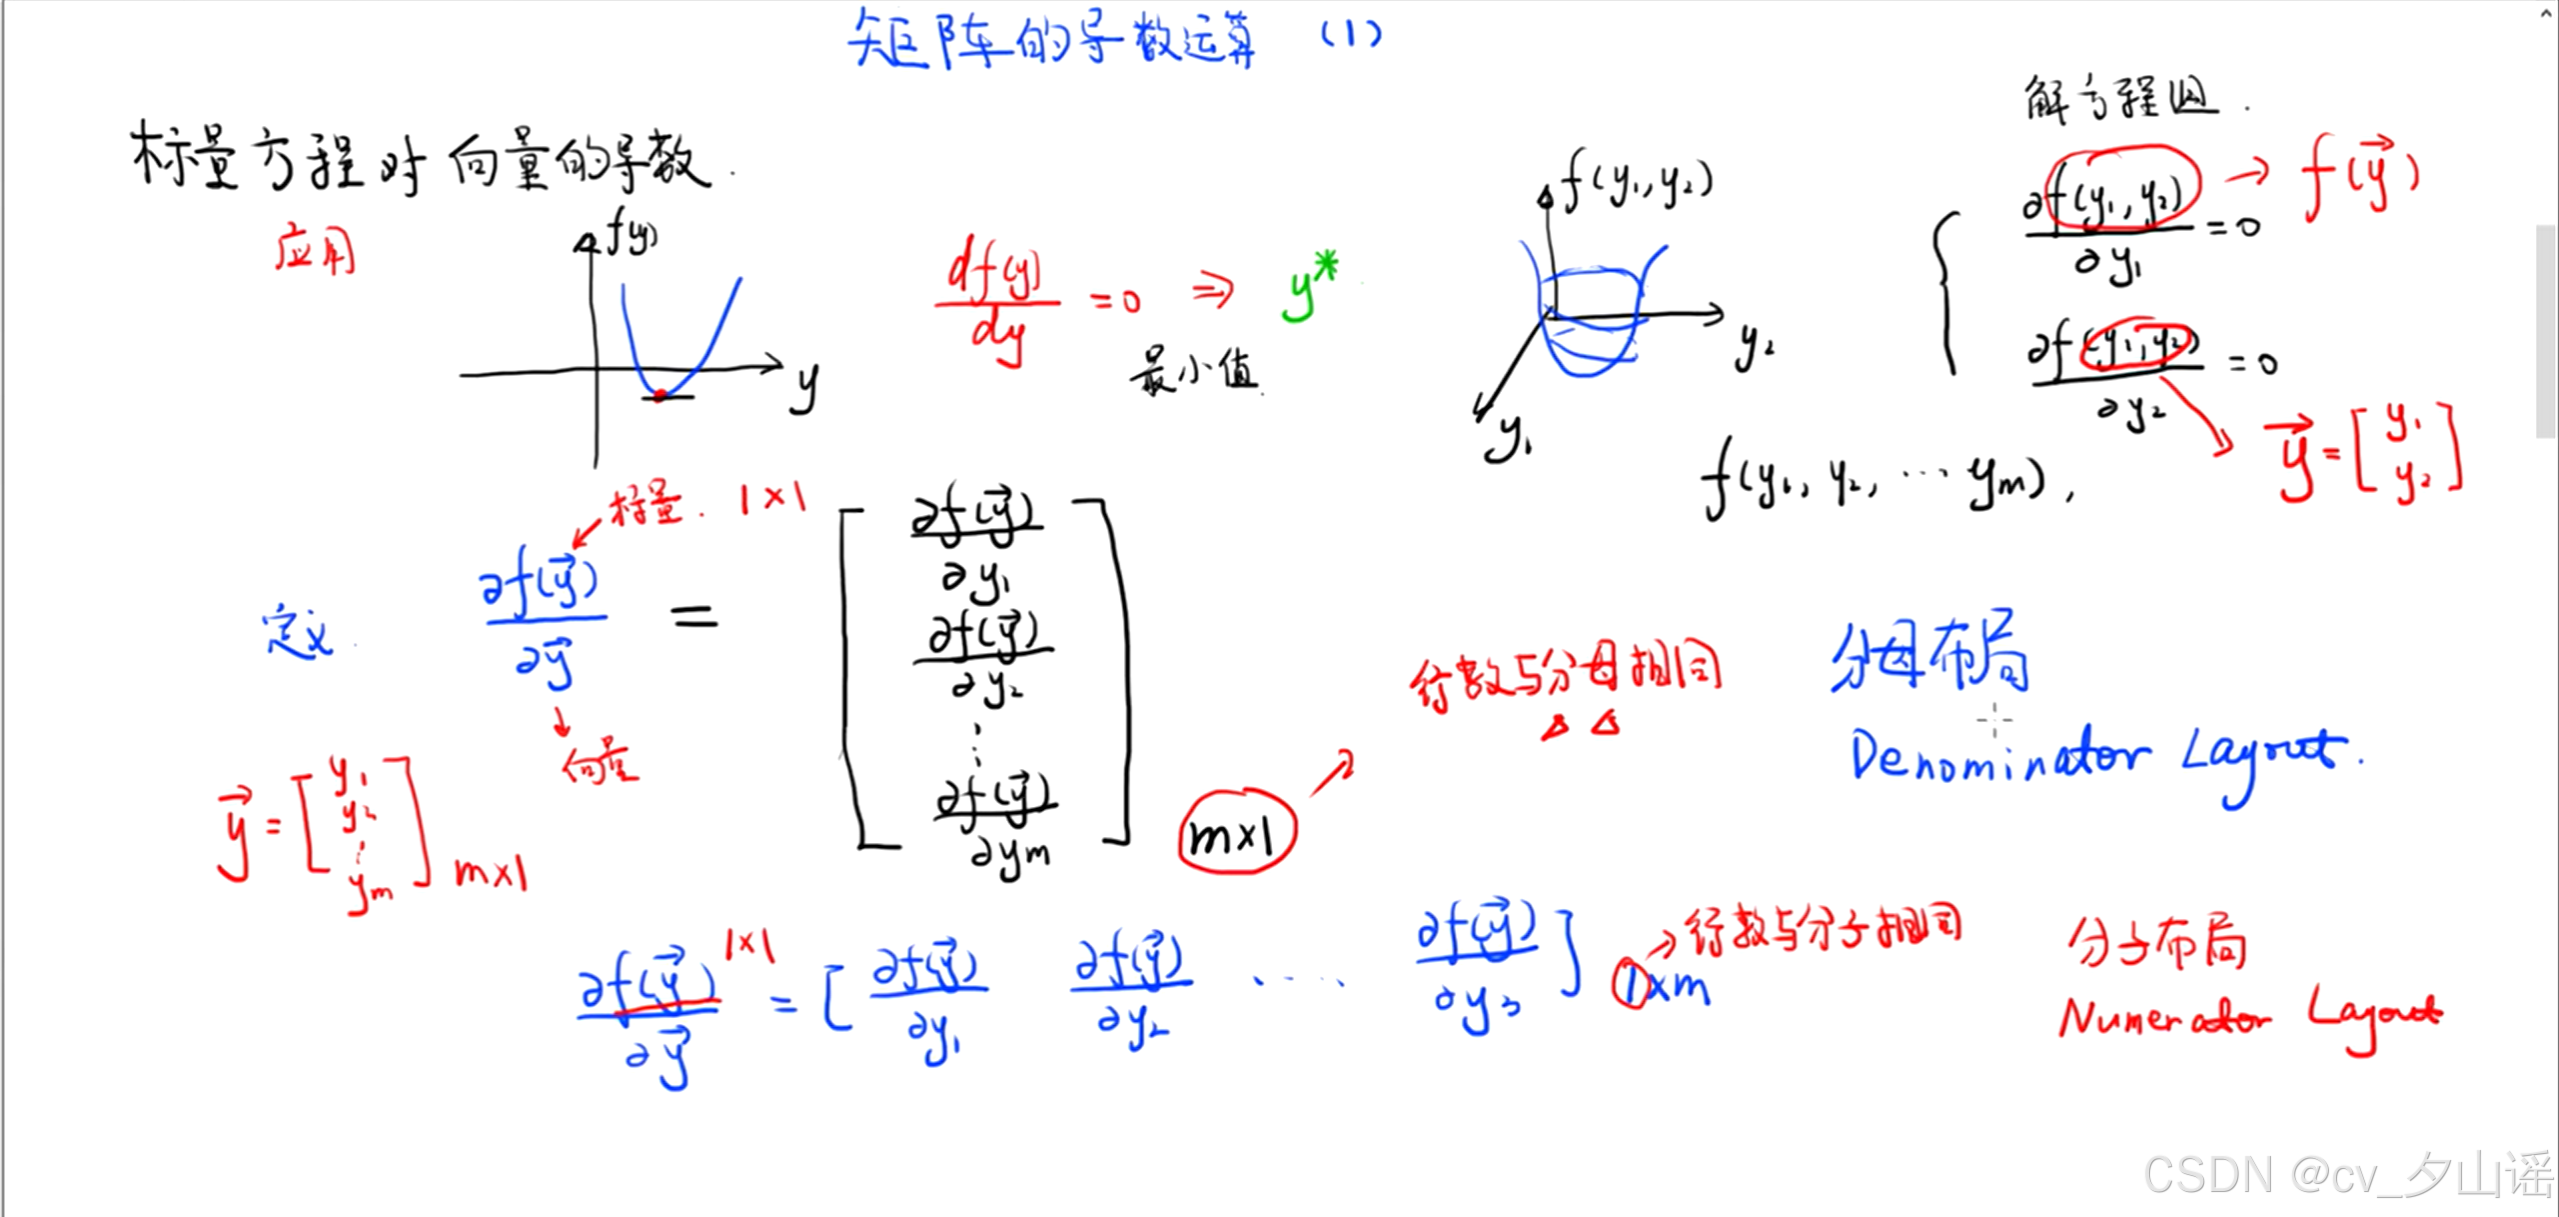 矩阵的导数运算 (1)
标量方程对向量的导数.
应用
f(y)
y
df(y)/dy = 0 ⇒ y*
最小值.
f(y₁, y₂)
y₂
y₁
解方程组.
∂f(y₁, y₂)/∂y₁ = 0 → f(y⃗)
∂f(y₁, y₂)/∂y₂ = 0
y⃗ = [y₁ y₂]
f(y₁, y₂, ⋯ yₘ),
标量. 1×1
定义. ∂f(y⃗)/∂y⃗ = [∂f(y⃗)/∂y₁ ∂f(y⃗)/∂y₂ ⋮ ∂f(y⃗)/∂yₘ] m×1
向量
y⃗ = [y₁ y₂ ⋮ yₘ] m×1
行数与分母相同
分母布局
Denominator Layout.
∂f(y⃗)/∂y⃗ 1×1 = [∂f(y⃗)/∂y₁ ∂f(y⃗)/∂y₂ ⋯⋯ ∂f(y⃗)/∂y₃] 1×m
→ 行数与分子相同
分子布局
Numerator Layout
CSDN @cv_夕山谣